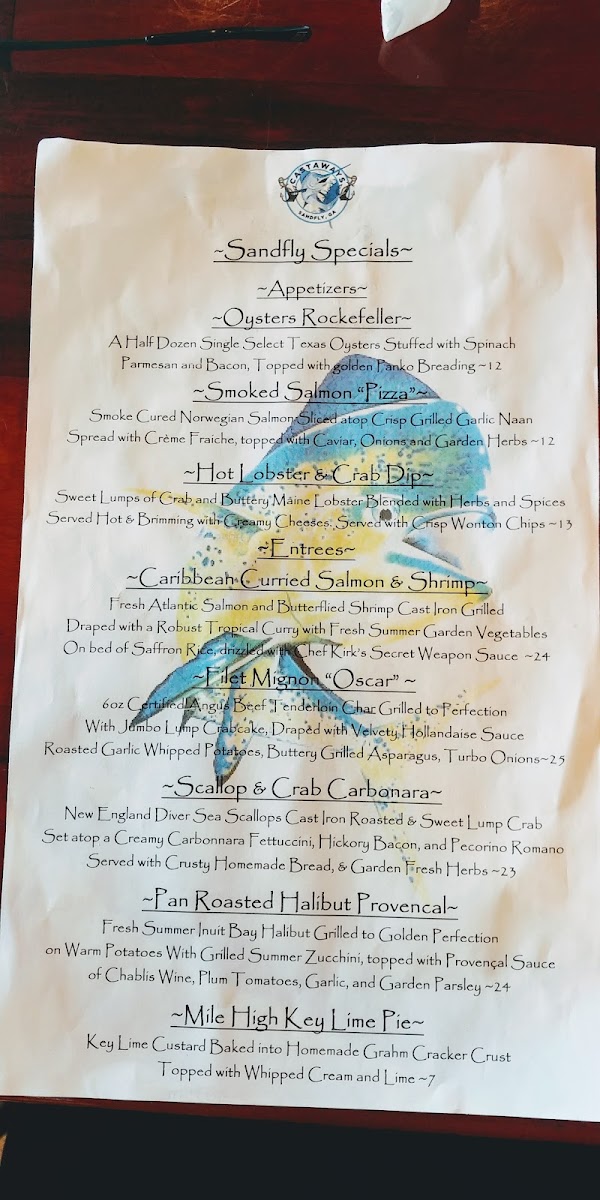 CASTAWAYS
SANDFLY, GA
~Sandfly Specials~
~Appetizers~
~Oysters Rockefeller~
A Half Dozen Single Select Texas Oysters Stuffed with Spinach
Parmesan and Bacon, Topped with golden Panko Breading ~12
~Smoked Salmon "Pizza"~
Smoke Cured Norwegian Salmon Sliced atop Crisp Grilled Garlic Naan
Spread with Crème Fraiche, topped with Caviar, Onions and Garden Herbs ~12
~Hot Lobster & Crab Dip~
Sweet Lumps of Crab and Buttery Maine Lobster Blended with Herbs and Spices
Served Hot & Brimming with Creamy Cheeses, Served with Crisp Wonton Chips ~13
~Entrees~
~Caribbean Curried Salmon & Shrimp~
Fresh Atlantic Salmon and Butterflied Shrimp Cast Iron Grilled
Draped with a Robust Tropical Curry with Fresh Summer Garden Vegetables
On bed of Saffron Rice, drizzled with Chef Kirk's Secret Weapon Sauce ~24
~Filet Mignon "Oscar" ~
6oz Certified Angus Beef Tenderloin Char Grilled to Perfection
With Jumbo Lump Crabcake, Draped with Velvety Hollandaise Sauce
Roasted Garlic Whipped Potatoes, Buttery Grilled Asparagus, Turbo Onions~25
~Scallop & Crab Carbonara~
New England Diver Sea Scallops Cast Iron Roasted & Sweet Lump Crab
Set atop a Creamy Carbonnara Fettuccini, Hickory Bacon, and Pecorino Romano
Served with Crusty Homemade Bread, & Garden Fresh Herbs ~23
~Pan Roasted Halibut Provencal~
Fresh Summer Inuit Bay Halibut Grilled to Golden Perfection
on Warm Potatoes With Grilled Summer Zucchini, topped with Provençal Sauce
of Chablis Wine, Plum Tomatoes, Garlic, and Garden Parsley ~24
~Mile High Key Lime Pie~
Key Lime Custard Baked into Homemade Grahm Cracker Crust
Topped with Whipped Cream and Lime ~7